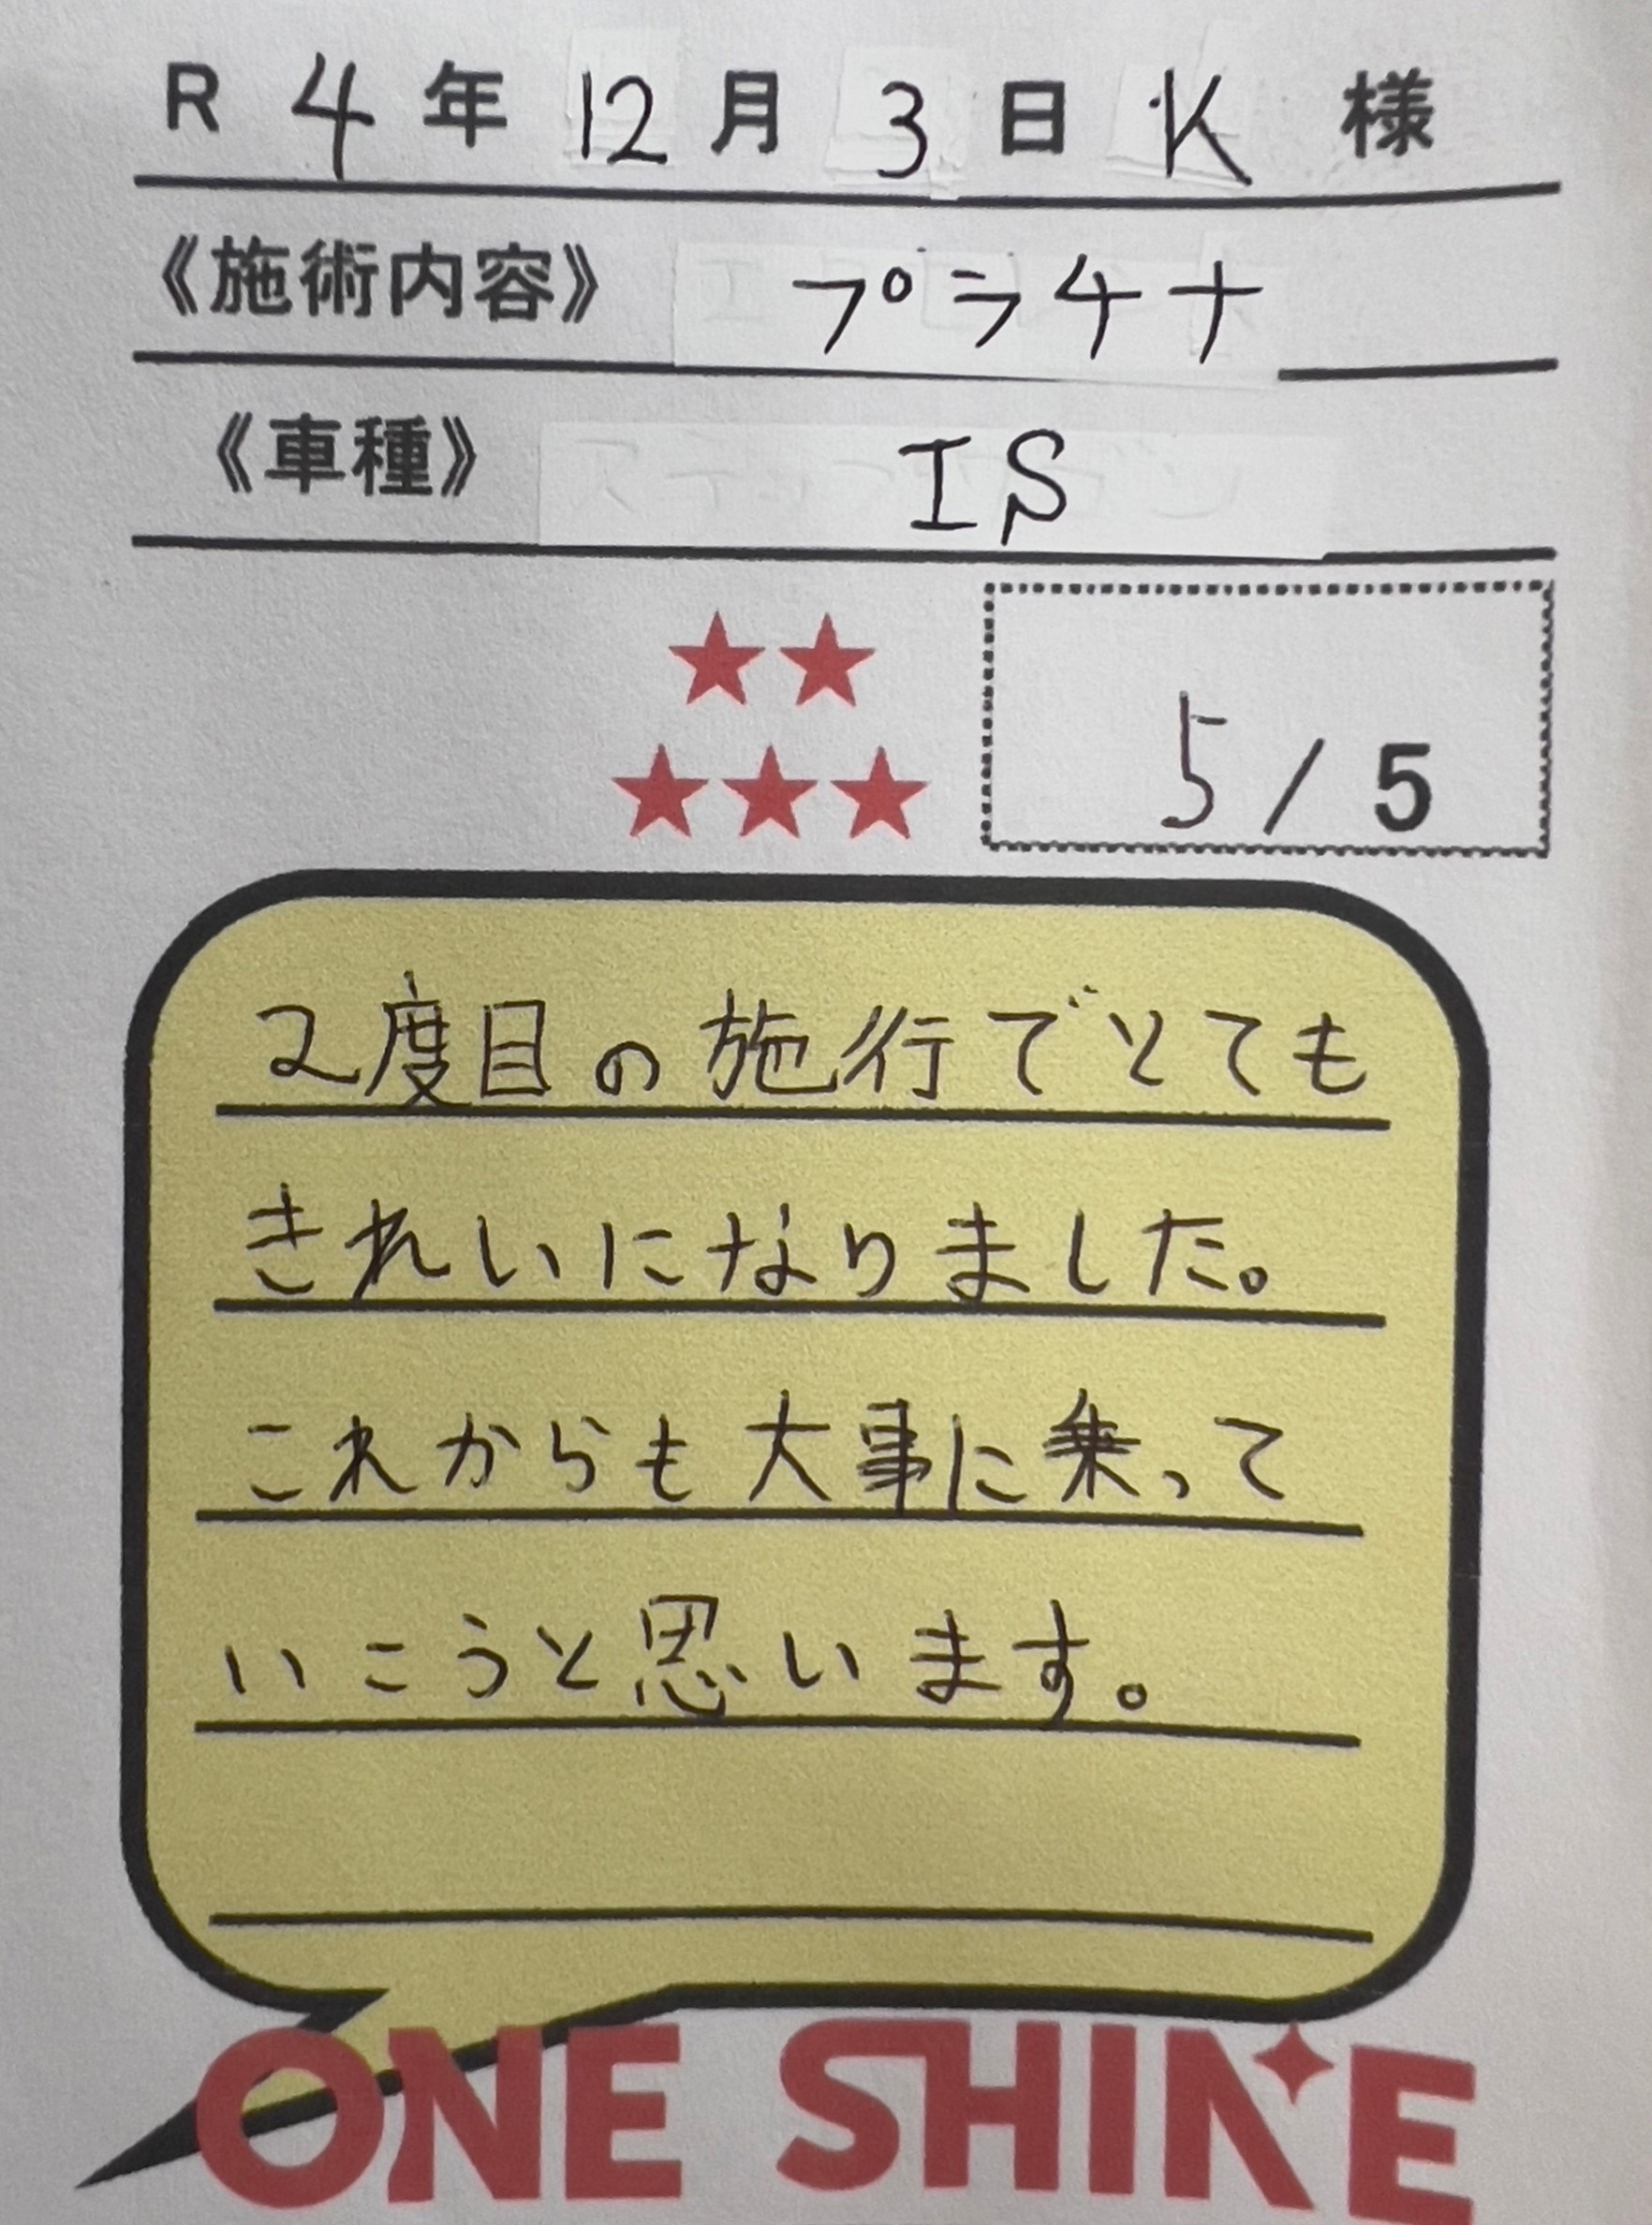 R 4 年 12 月 3 日 K 様
《施術内容》 プラチナ
《車種》 IS
★★
★★★
5 / 5
2度目の施行でとても
きれいになりました。
これからも大事に乗って
いこうと思います。
ONE SHINE